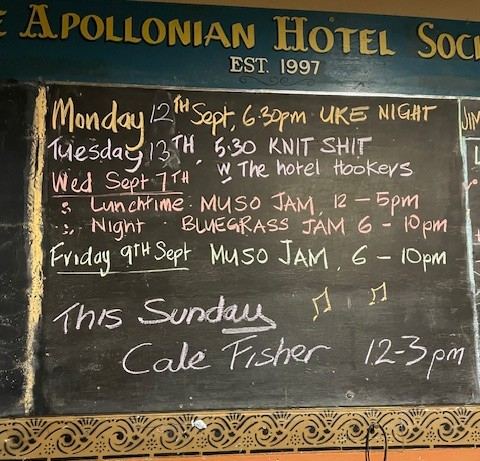 E APOLLONIAN HOTEL SOCI
EST. 1997
Monday 12TH Sept, 6.30pm UKE NIGHT
Tuesday 13TH, 5:30 KNIT SHIT
W The hotel Hookers
Wed Sept 7TH
: Lunchtime: MUSO JAM 12 - 5pm
: Night · BLUEGRASS JAM 6 - 10pm
Friday 9TH Sept MUSO JAM, 6 - 10pm
This Sunday
Cale Fisher 12-3pm